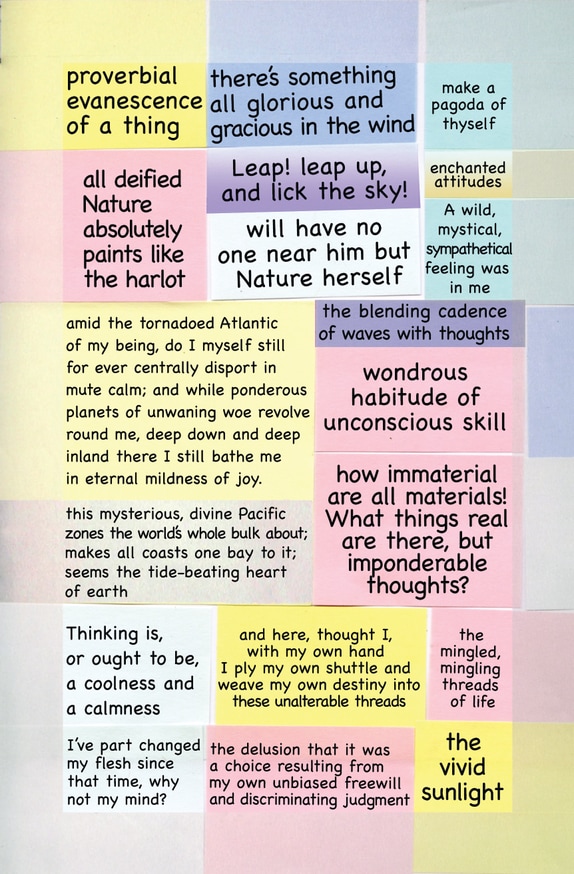 proverbial
evanescence
of a thing
there's something
all glorious and
gracious in the wind
make a
pagoda of
thyself
all deified
Nature
absolutely
paints like
the harlot
Leap! leap up,
and lick the sky!
enchanted
attitudes
will have no
one near him but
Nature herself
A wild,
mystical,
sympathetical
feeling was
in me
amid the tornadoed Atlantic
of my being, do I myself still
for ever centrally disport in
mute calm; and while ponderous
planets of unwaning woe revolve
round me, deep down and deep
inland there I still bathe me
in eternal mildness of joy.
the blending cadence
of waves with thoughts
wondrous
habitude of
unconscious skill
how immaterial
are all materials!
What things real
are there, but
imponderable
thoughts?
this mysterious, divine Pacific
zones the world's whole bulk about;
makes all coasts one bay to it;
seems the tide-beating heart
of earth
Thinking is,
or ought to be,
a coolness and
a calmness
and here, thought I,
with my own hand
I ply my own shuttle and
weave my own destiny into
these unalterable threads
the
mingled,
mingling
threads
of life
I've part changed
my flesh since
that time, why
not my mind?
the delusion that it was
a choice resulting from
my own unbiased freewill
and discriminating judgment
the
vivid
sunlight